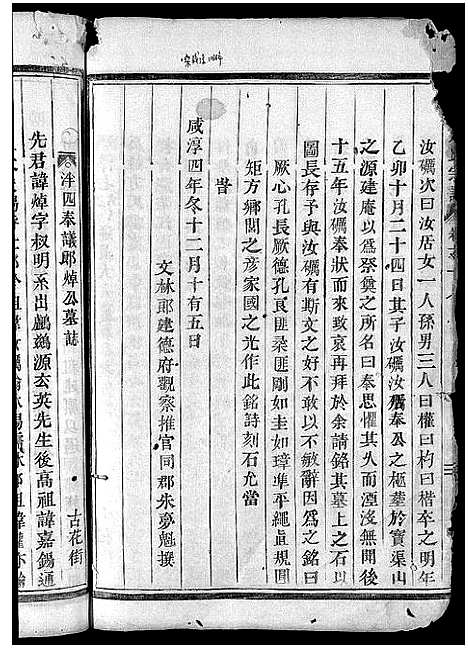 汝礪次曰汝店女一人孫男三人曰權曰杓曰楷卒之明年
乙卯十月二十四日其子汝礪汝店奉公之柩葬於寶渠山
之源建庵以爲祭奠之所名曰奉思懼其久而湮沒無聞後
十五年汝礪奉狀而來致哀再拜於余請銘其墓上之石以
圖長存予與汝礪有斯文之好不敢以不敏辭因爲之銘曰
厥心孔長厥德孔良匪柔匪剛如圭如璋準平繩直規圓
矩方鄉閭之彥家國之光作此銘詩刻石允當
旹
咸淳四年冬十二月十有五日
文林郎建德府觀察推官同郡朱夢魁撰
泮四奉議郎焯公墓誌
古花街
先君諱焯字叔明系出鸕鶿源玄英先生後高祖諱嘉錫通